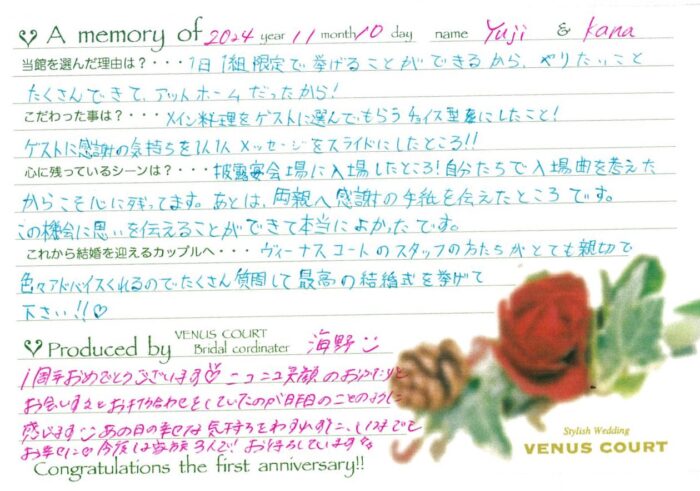 ♡ A memory of 2024 year 11 month 10 day name Yuji & kana
当館を選んだ理由は？・・・1日1組限定で挙げることができるから、やりたいこと
たくさんできて、アットホームだったから！
こだわった事は？・・・メイン料理をゲストに選んでもらうチョイス型にしたこと！
ゲストに感謝の気持ちを1人1人メッセージをスライドにしたところ!!
心に残っているシーンは？・・・披露宴会場に入場したところ！自分たちで入場曲を考えた
からこそ心に残ってます。あとは、両親へ感謝の手紙を伝えたところです。
この機会に思いを伝えることができて本当によかったです。
これから結婚を迎えるカップルへ・・・ヴィーナスコートのスタッフの方たちがとても親切で
色々アドバイスくれるのでたくさん質問して最高の結婚式を挙げて
下さい!!♡
♡ Produced by VENUS COURT Bridal cordinater 海野
1周年おめでとうございます♡ニコニコ笑顔のおふたりと
お会いするとお打ち合わせをしていたのが昨日のことのように
感じますあの日の幸せな気持ちをわすれずに、いつまでも
お幸せに♡今度は家族3人で！お待ちしています
Congratulations the first anniversary!!
Stylish Wedding
VENUS COURT